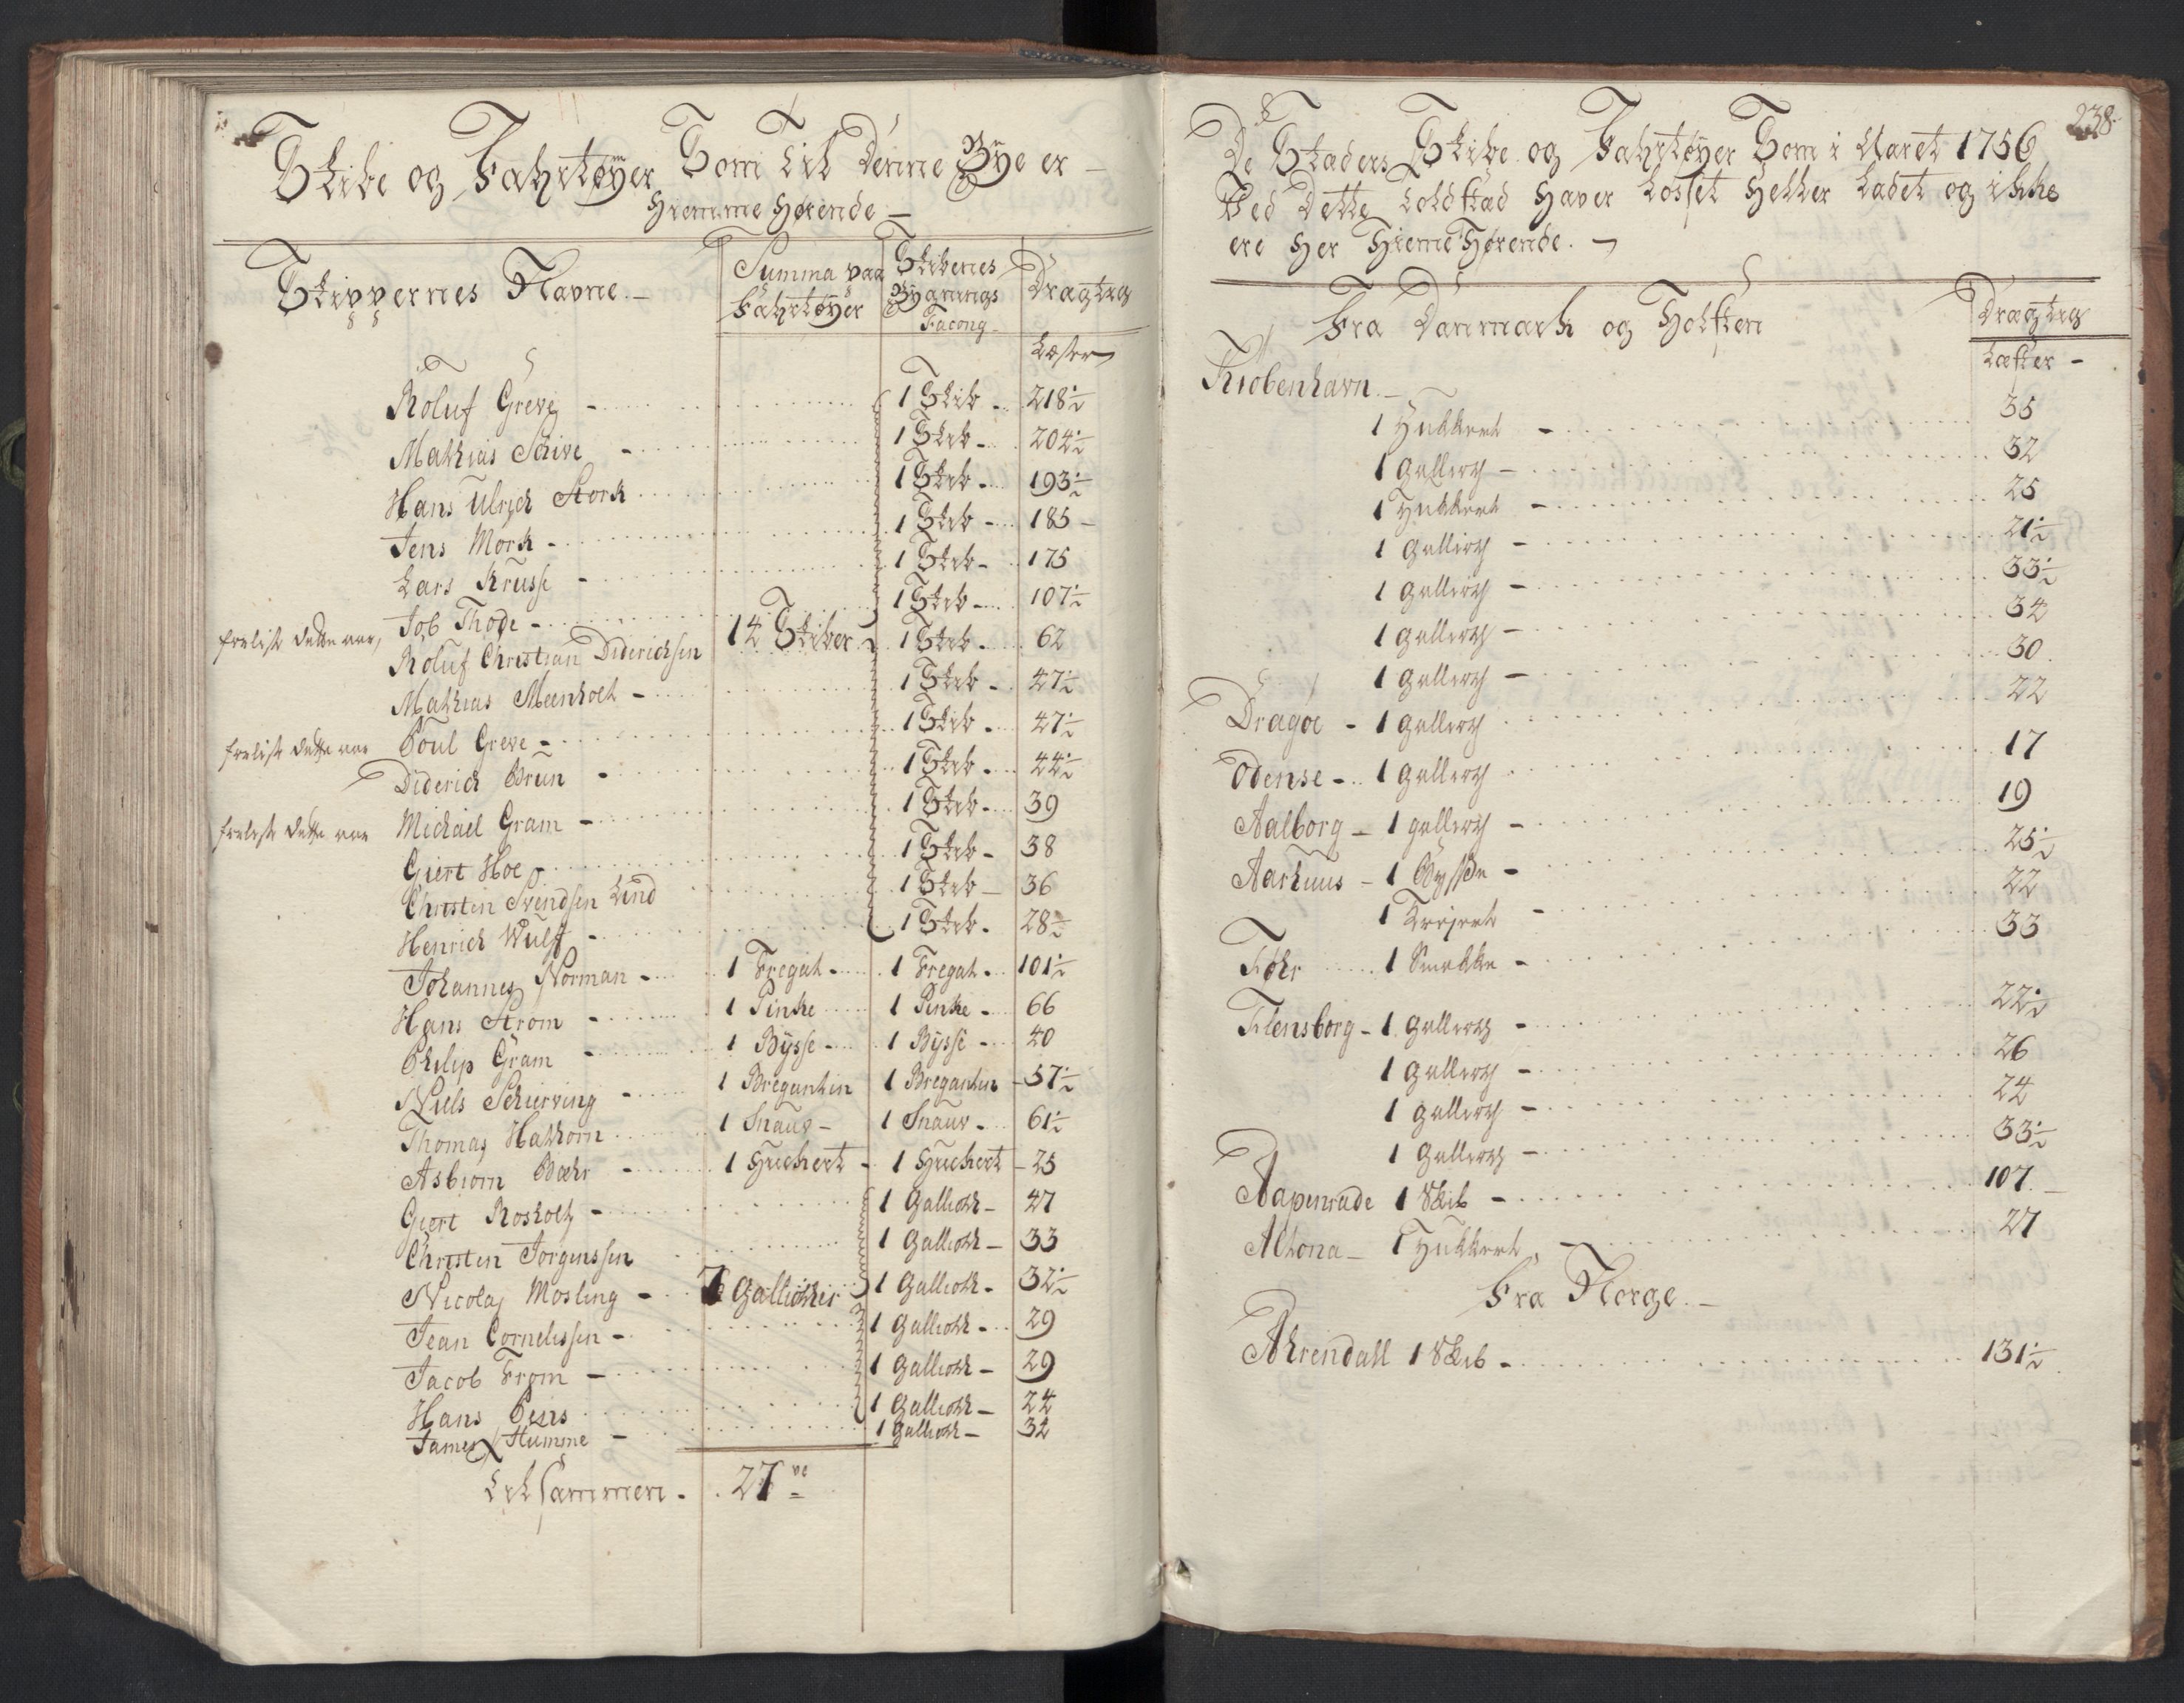 Skibe og Fahrtøyer Som til denne Bye er
Hiemme Hørende
Skippernes Navne Summa paa Fahrtøyer Skibenes Bygnings Facong Drægtig
Læster
Roluf Greve 1 Skib 218½
Mathias Schive 1 Skib 204½
Hans Ulrich Stork 1 Skib 193½
Jens Mork 1 Skib 185
Lars Krusse 1 Skib 175
Job Thode 1 Skib 107½
forlist dette aar, Roluf Christian Diderichsen 14 Skiber 1 Skib 62
Mathias Meenholt 1 Skib 47½
forlist dette aar Poul Greve 1 Skib 47½
Diderich Brun 1 Skib 44½
forlist dette aar Michael Gram 1 Skib 39
Giert Hoe 1 Skib 38
Christen Svendsen Lind 1 Skib 36
Henrich Wulff 1 Skib 28½
Johannes Norman 1 Fregat 1 Fregat 101½
Hans Strøm 1 Pinke 1 Pinke 66
Philip Gram 1 Bysse 1 Bysse 40
Niels Schierving 1 Bregantin 1 Bregantin 57½
Thomas Hathorn 1 Snauv 1 Snauv 61½
Asbiorn Bæhr 1 Huckert 1 Huckert 25
Giert Rosholt 1 Gallioth 47
Christen Jorgenssen 1 Gallioth 33
Nicolay Mosling 7 Galliother 1 Gallioth 32½
Jean Cornelissen 1 Gallioth 29
Jacob From 1 Gallioth 29
Hans Peirs 1 Gallioth 24
James Humme 1 Gallioth 34
Tilsammen 27ve
238
De Stæders Skibe og Fahrtøyer Som i Aaret 1756
Ved Dette Toldstæd Haver Losset Heller Ladet og ikke
ere Her Hieme Hørende.
Fra Danmark og Holsten Drægtig
Læster
Kiøbenhavn
1 Hukkert 35
1 Galleoth 32
1 Hukkert 25
1 Galleoth 21½
1 Galleoth 33½
1 Galleoth 34
1 Galleoth 30
Dragøe 1 Galleoth 22
Odense 1 Galleoth 17
Aalborg 1 galleoth 19
Aarhuus 1 Bysse 25½
1 Krejert 22
Føhr 1 Smakke 33
Flensborg 1 Galleoth 22½
1 Galleoth 26
1 Galleoth 24
1 Galleoth 33½
Aapenrade 1 Skib 107
Altona 1 Hukkert 27
Fra Norge
Ahrendall 1 Skib 131½